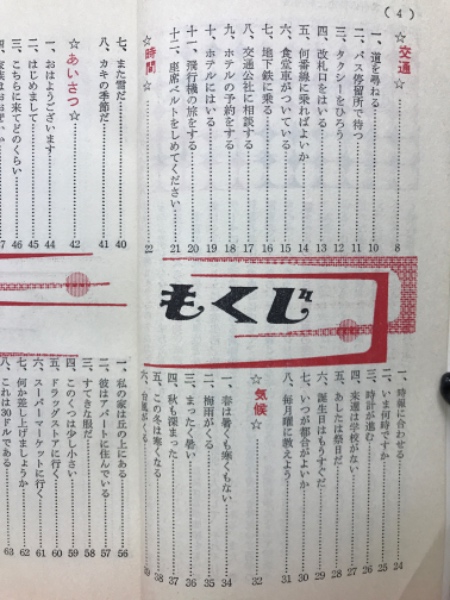 (4)
もくじ
☆交通☆ 8
一、道を尋ねる 10
二、バス停留所で待つ 11
三、タクシーをひろう 12
四、改札口をはいる 13
五、何番線に乗ればよいか 14
六、食堂車がついている 15
七、地下鉄に乗る 16
八、交通公社に相談する 17
九、ホテルの予約をする 18
十、ホテルにはいる 19
十一、飛行機の旅をする 20
十二、座席ベルトをしめてください 21
☆時間☆ 22
一、時報に合わせる 24
二、いま何時ですか 25
三、時計が進む 26
四、来週は学校がない 27
五、あしたは祭日だ 28
六、誕生日はもうすぐだ 29
七、いつが都合がよいか 30
八、毎月曜に教えよう 31
☆気候☆ 32
一、春は暑くも寒くもない 34
二、梅雨がくる 35
三、まったく暑い 36
四、秋も深まった 37
五、この冬は寒くなる 38
六、台風がくる 39
七、また雪だ 40
八、カキの季節だ 41
☆あいさつ☆ 42
一、おはようございます 44
二、はじめまして 45
三、こちらに来てどのくらい 46
一、私の家は丘の上にある 56
二、彼はアパートに住んでいる 57
三、すてきな眼だ 58
四、このくつは少し小さい 59
五、ドラッグストアに行く 60
六、スーパーマーケットに行く 61
七、何か差し上げましょうか 62
八、これは30ドルである 63